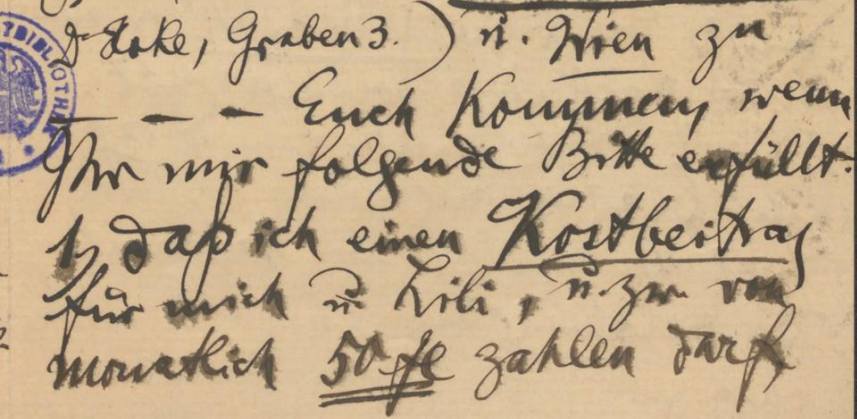 Graben 3.) u. Wien zu
— — — Euch Kommen, wenn
Ihr mir folgende Bitte erfüllt.
1, daß ich einen Kostbeitrag
für mich u. Lili, u. zw. von
monatlich 50 fl zahlen darf,